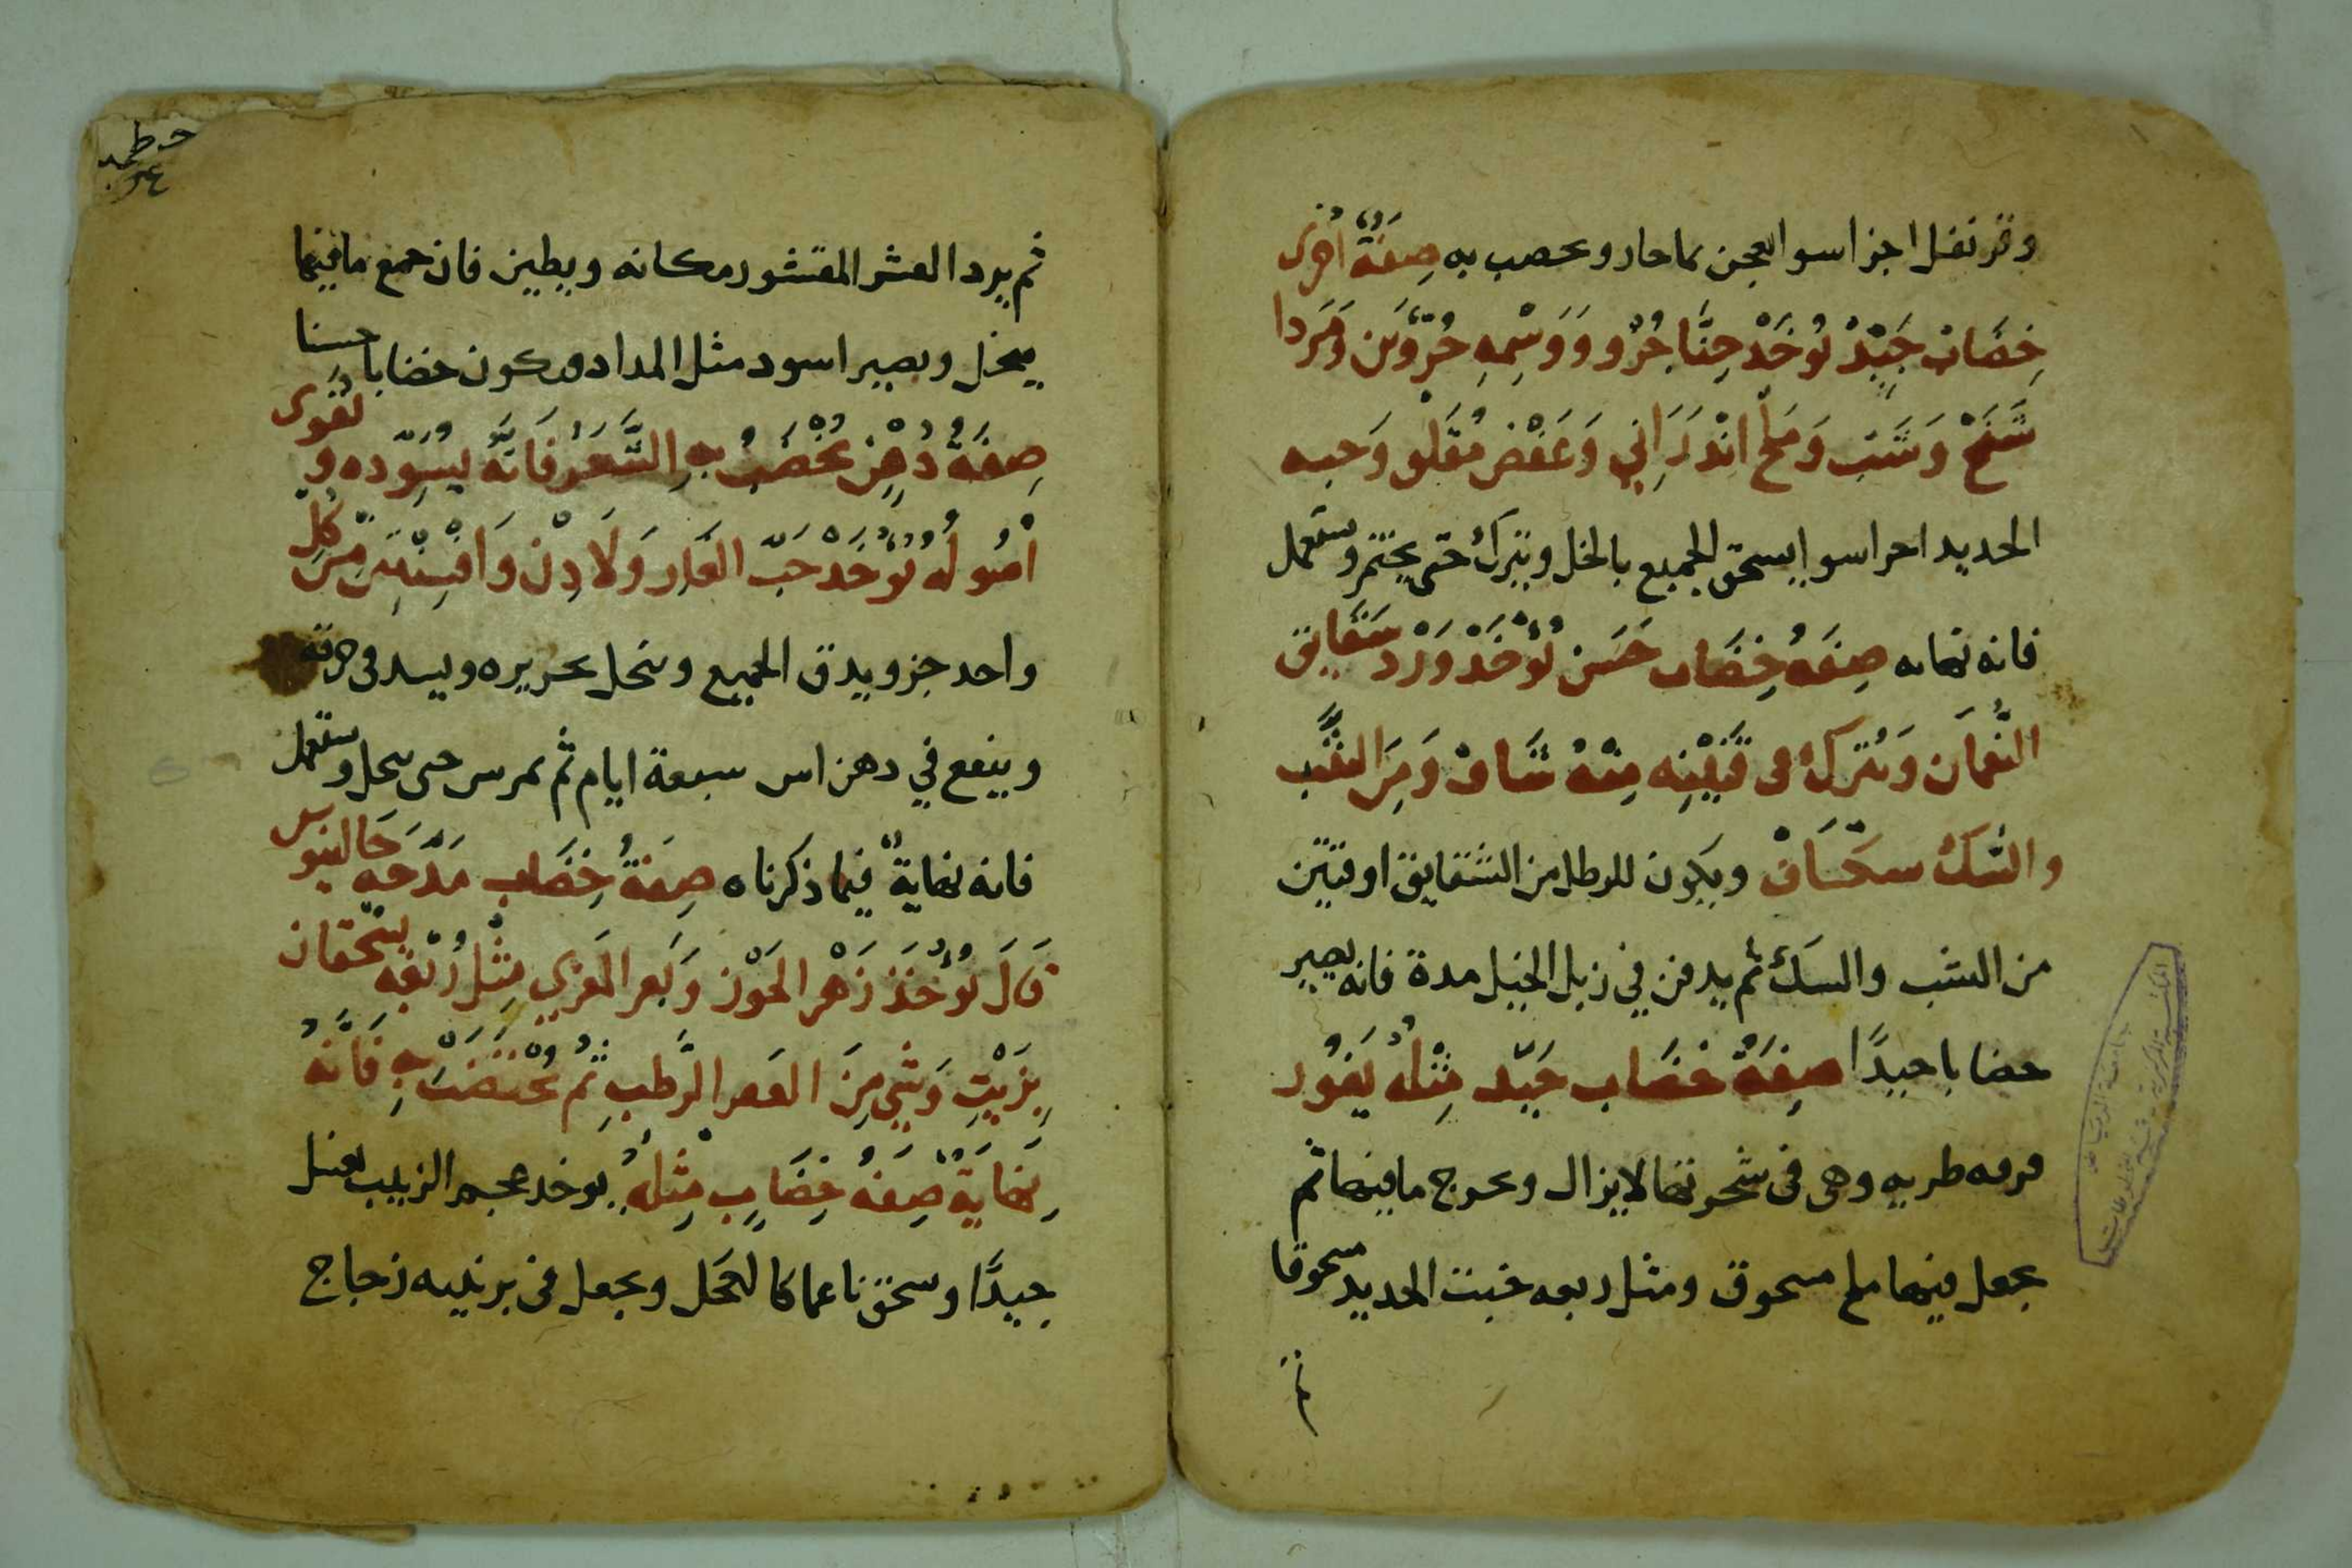 وقرنفل اجزا سوا يعجن بما حار ويخصب به صِفَةٌ اُخْرى
خِضَاب جَيِّدْ يُوخَذ حِنَّا جُزْو وَوَسْمِهِ جُزْوَين وَمَردا
سَنْج وَشَب وَمَلح اندَرَاني وَعَفْص مَقلو وَخبه
الحديد اجزا سوا يسحق الجميع بالخل ويترك حتى يختمر ويستعمل
فانه نهايه صِفَةُ خِضَاب حَسَن يُوْخَذ وَرْد شَقَايق
النُّعمَان وَيُترَكُ فى قَنِيْنِه مِنْهُ سَاف وَمِنَ الشَّب
والسَّك سَاف ويكون للرطل من الشقايق اوقيتين
من الشب والسك ثم يدفن في زبل الخيل مدة فانه يصير
خضابا جيدًا صِفَةُ خِضَاب جَيّد مِثْلُه يَفُور
قرعه طريه وهى فى شجرتها لا يزال ويخرج ما فيها ثم
يجعل فيها ملح مسحوق ومثل ربعه خبث الحديد مسحوقا
ثم
ثم يرد القشر المقشور مكانه ويطين فان جمع ما فيها
ينحل ويصير اسود مثل المداد ويكون خضابا حسنا
صِفَةُ دُهْنٍ يُخْضَبُ بِهِ الشَّعر فَانَّه يُسوّده ويقوى
اصُولُه يُوْخَذ حَبّ الغار وَلَادِن وَافسِنْتِين مِن كُلِّ
واحد جزو يدق الجميع وينخل بحريره ويشد فى خرقه
وينقع في دهن اس سبعة ايام ثم يمرس حتى ينحل ويستعمل
فانه نهايةٌ فيما ذكرناه صِفَةُ خِضَاب مَدَحَه جَالينوس
قَالَ يُوْخَذ زَهْر الجَوْز وَبَعر المَعزي مِثْل رُبْعِه يسحقان
بِزَيْتِ وَشَي مِنَ القفر الرَّطب ثُم يُخْتَضَبْ بِهِ فَانَّهُ
نِهَايَةٌ صِفَةُ خِضَابٍ مِثْلُه يوخذ عجم الزبيب يغسل
جيدًا ويسحق ناعما كالكحل ويجعل فى برنيه زجاج